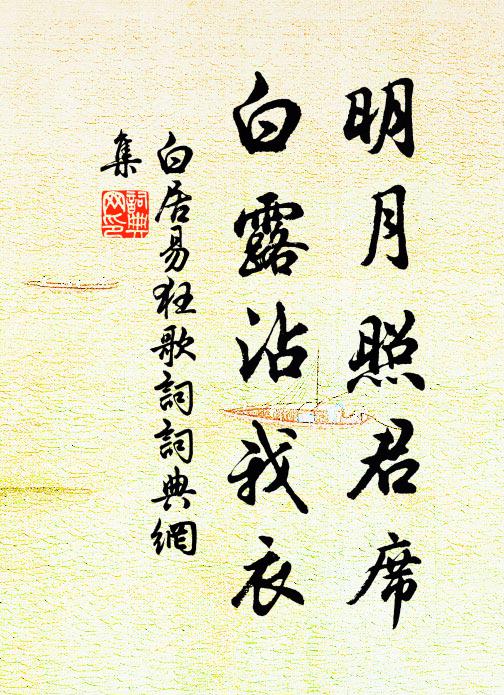 明月照君席
白露沾我衣
白居易狂歌詞詞典網
集
詞典网印